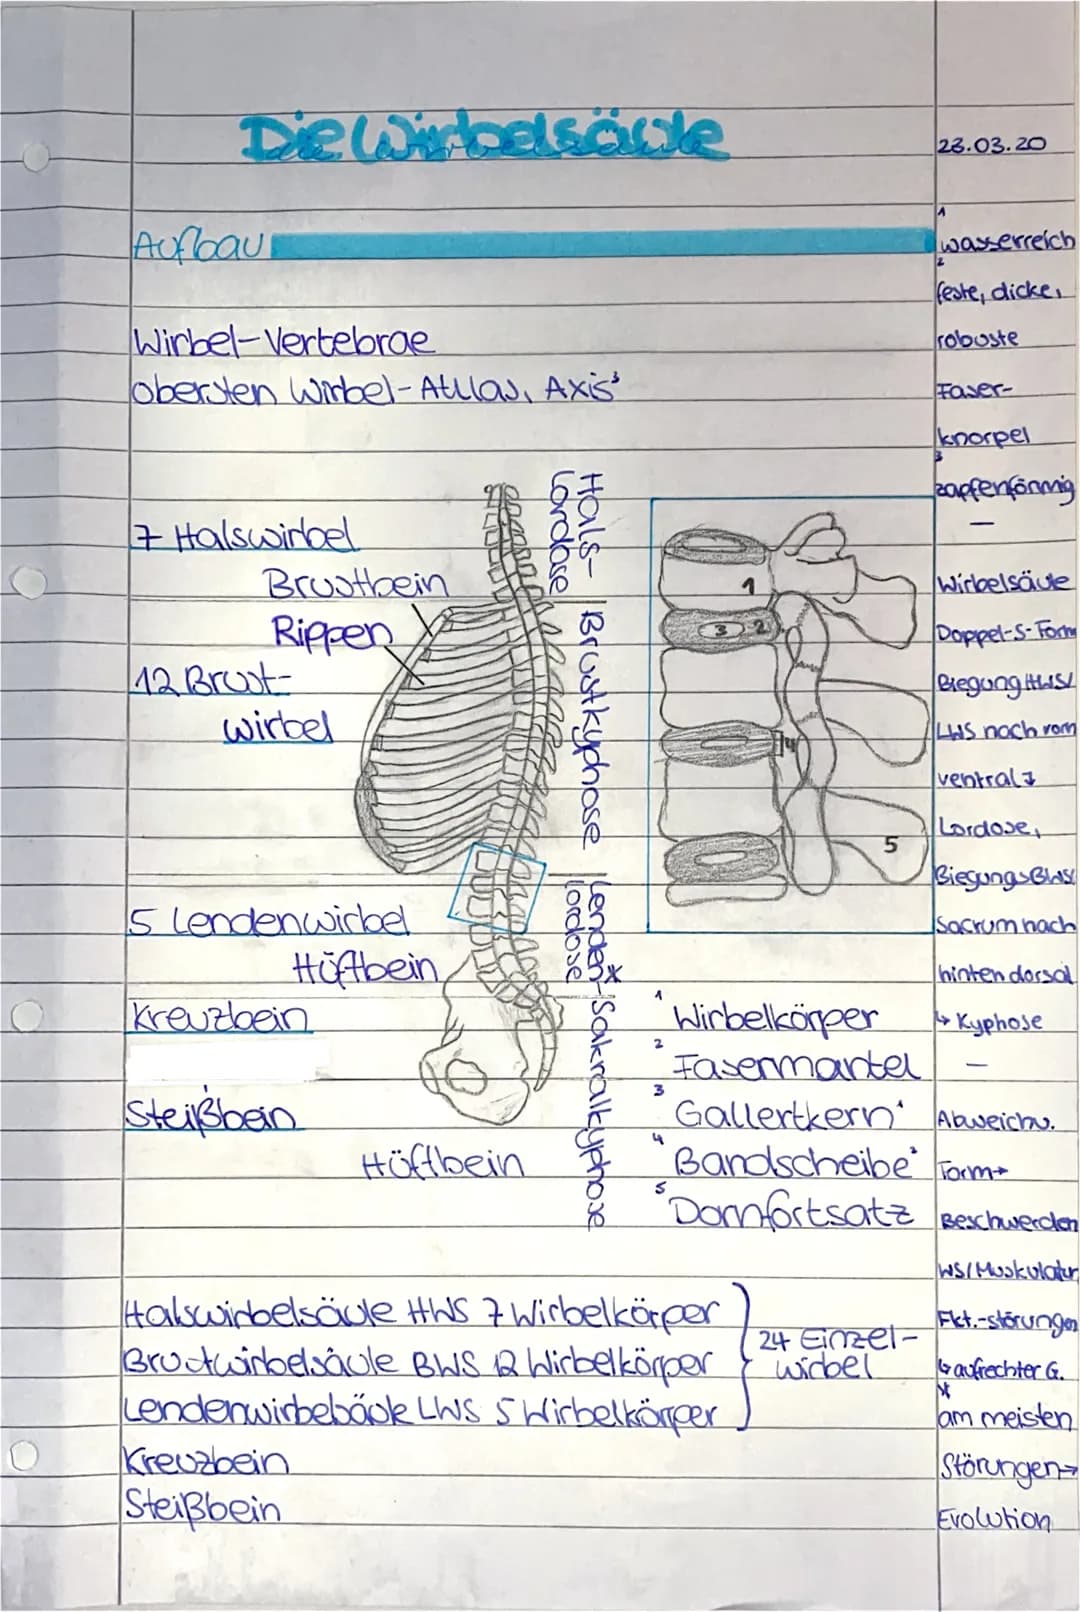 Die Wirbelsäule
23.03.20
Aufbau
Wirbel-Vertebrae
obersten Wirbel-Atlas, Axis³
7 Halswirbel
Brustbein
Rippen
12 Brust-
wirbel
5 Lendenwirbel
Hüftbein
Kreuzbein
Steißbein
Hüftbein
Hals-
lordose
Brustkyphose
Lenden*-
lordose
Sakralkyphose
1
3 2
4
5
¹ Wirbelkörper
² Fasermantel
³ Gallertkern¹
⁴ Bandscheibe²
⁵ Dornfortsatz
Halswirbelsäule HWS 7 Wirbelkörper
Brustwirbelsäule BWS 12 Wirbelkörper
Lendenwirbelsäule LWS 5 Wirbelkörper
24 Einzel-
wirbel
Kreuzbein
Steißbein
1
wasserreich
2
feste, dicke,
robuste
Faser-
knorpel
3
zapfenförmig
–
Wirbelsäule
Doppel-S-Form
Biegung HWS/
LWS nach vorn
ventral
Lordose,
Biegungs BWS/
Sacrum nach
hinten dorsal
↳ Kyphose
–
Abweichu.
Form→
Beschwerden
WS/Muskulatur
Fkt.-störungen
↳ aufrechter G.
*
am meisten
Störungen→
Evolution